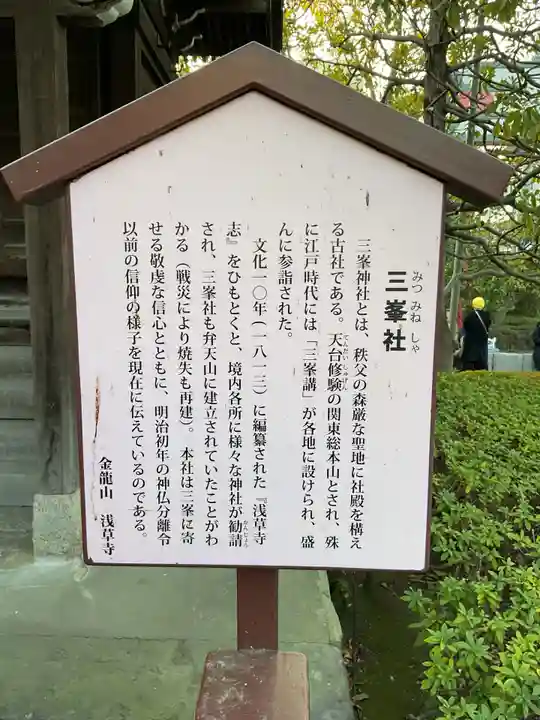 三峯社
みつ みね しゃ
三峯神社とは、秩父の森厳な聖地に社殿を構え
る古社である。天台修験の関東総本山とされ、殊
てんだいしゅげん
に江戸時代には「三峯講」が各地に設けられ、盛
んに参詣された。
文化一〇年(一八一三)に編纂された『浅草寺
志』をひもとくと、境内各所に様々な神社が勧請
かんじょう
され、三峯社も弁天山に建立されていたことがわ
かる(戦災により焼失も再建)。本社は三峯に寄
せる敬虔な信心とともに、明治初年の神仏分離令
以前の信仰の様子を現在に伝えているのである。
金龍山 浅草寺